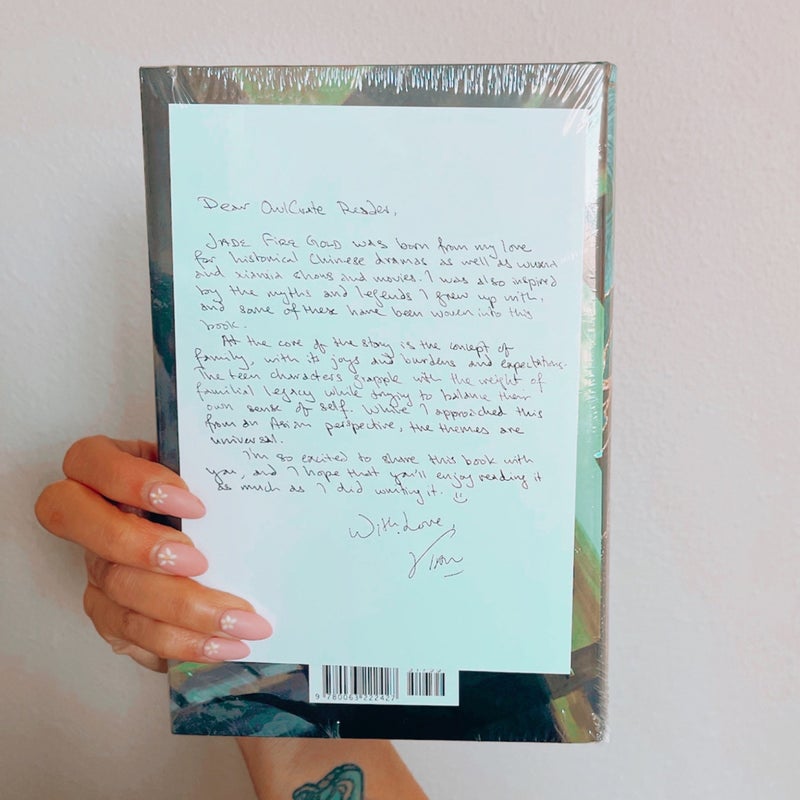 Dear OwlCrate Reader,
JADE FIRE GOLD was born from my love
for historical Chinese dramas as well as wuxia
and xianxia shows and movies. I was also inspired
by the myths and legends I grew up with,
and some of these have been woven into this
book.
At the core of the story is the concept of
family, with its joys and burdens and expectations.
The teen characters grapple with the weight of
familial legacy while trying to balance their
own sense of self. While I approached this
from an Asian perspective, the themes are
universal.
I'm so excited to share this book with
you, and I hope that you'll enjoy reading it
as much as I did writing it. :)
With Love,
9 780063 222427